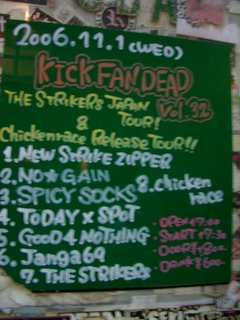 2006.11.1(WED)
KICKFANDEAD
VOL.32
THE STRIKERS JAPAN
TOUR!
&
Chickenrace Release TOUR!!
1. NEW STRIKE ZIPPER
2. NO★GAIN
3. SPICY SOCKS
4. TODAY x SPOT
5. GOOD4 NOTHING
6. Janga69
7. THE STRIKERS
8. chicken
race
- OPEN 17:00
- START 17:30
- DOOR ¥1800-
- DRINK ¥600-